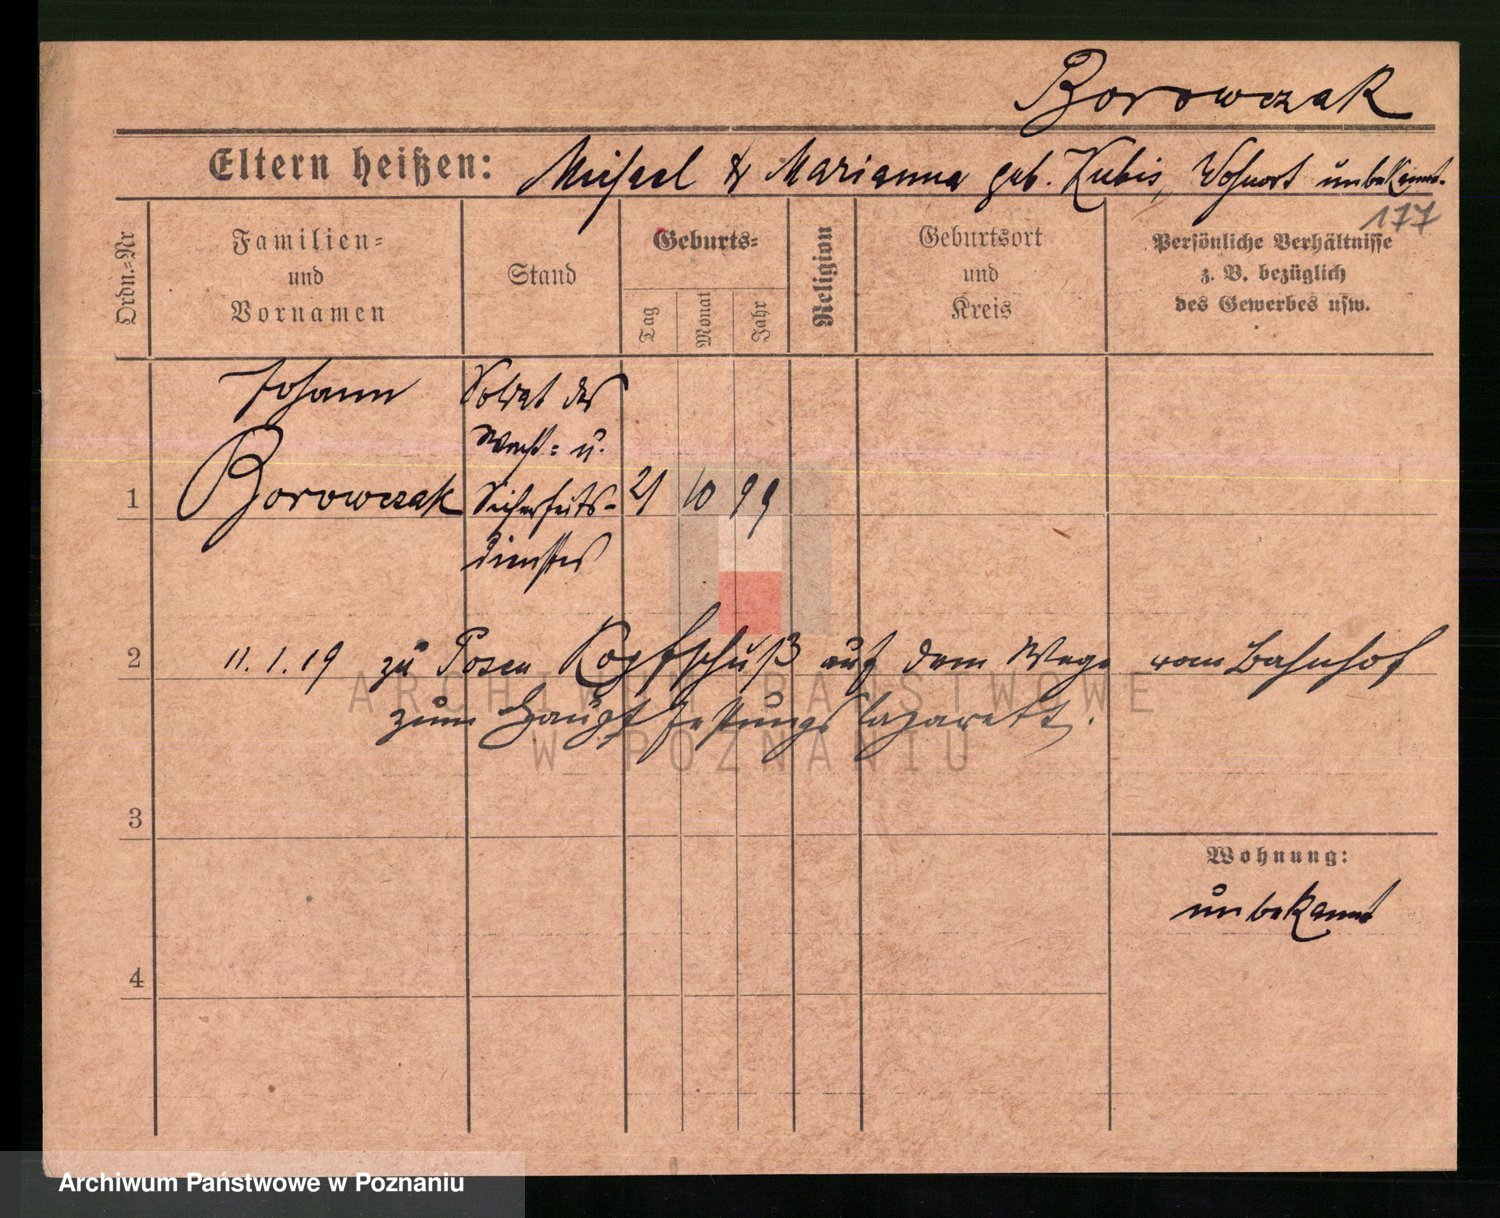 Borowczak
Eltern heißen: Michael & Marianna geb. Kubis, Wohnort unbekannt.
177
Ordn.-Nr
Familien-
und
Vornamen
Stand
Geburts-
Tag
Monat
Jahr
Religion
Geburtsort
und
Kreis
Persönliche Verhältnisse
z. B. bezüglich
des Gewerbes usw.
1
Johann
Borowczak
Soldat des
Wach- u.
Sicherheits-
dienstes
21 10 99
2
11.1.19 zu Posen Kopfschuß auf dem Wege vom Bahnhof
zum Hauptfestungslazarett.
3
Wohnung:
unbekannt
4
ARCHIWUM PAŃSTWOWE
W POZNANIU
Archiwum Państwowe w Poznaniu